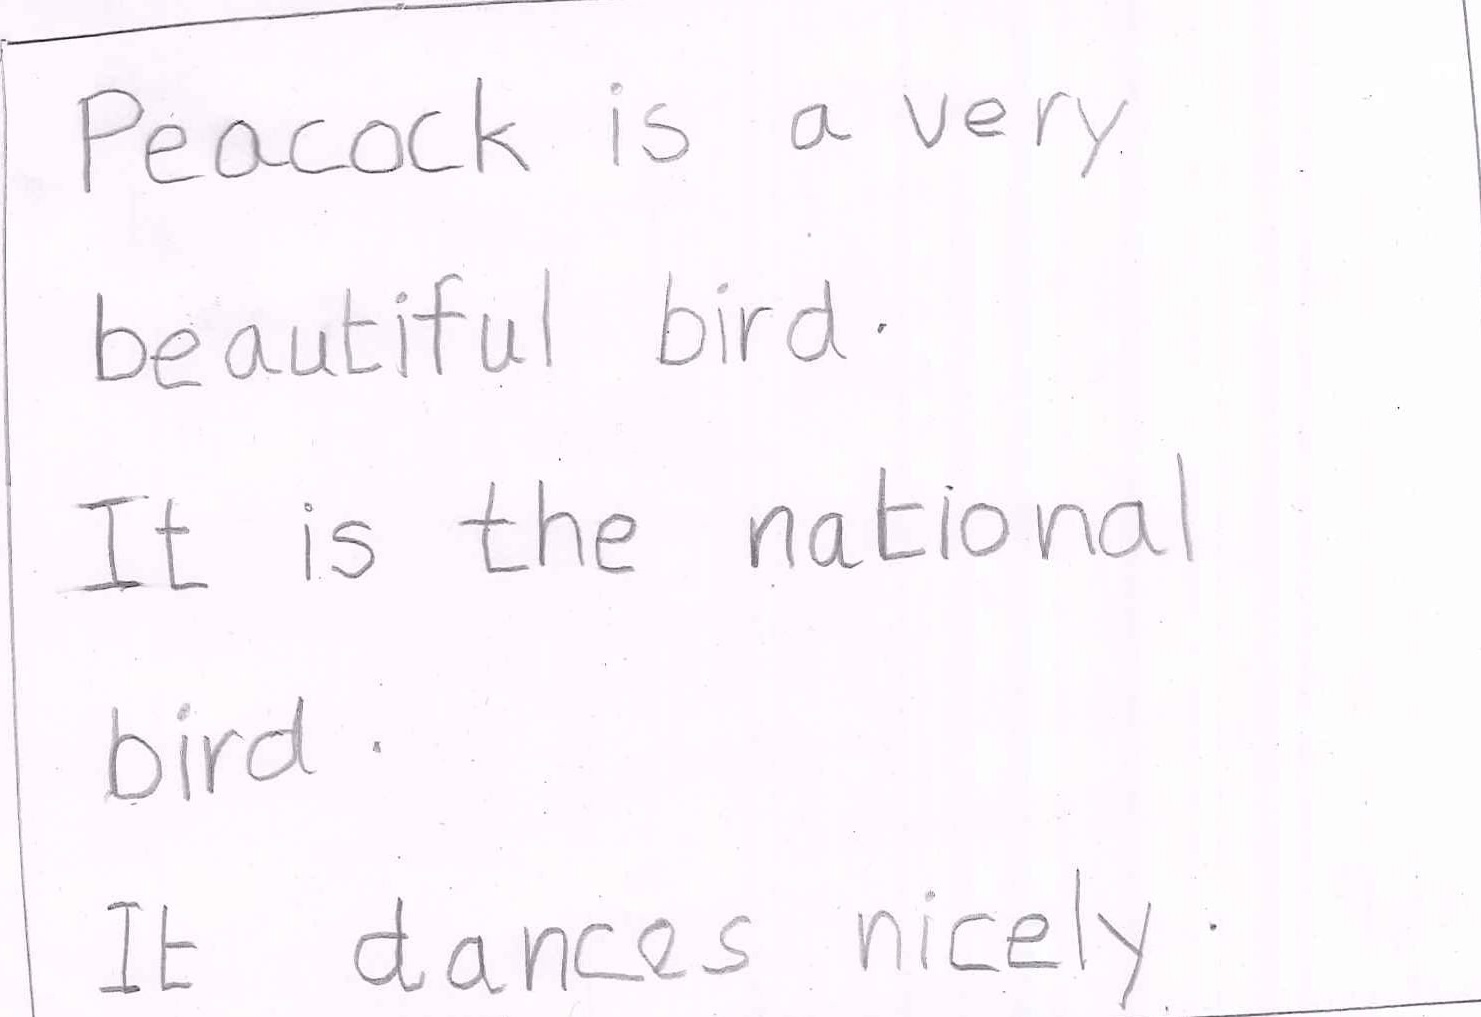 Peacock is a very
beautiful bird.
It is the national
bird.
It dances nicely.